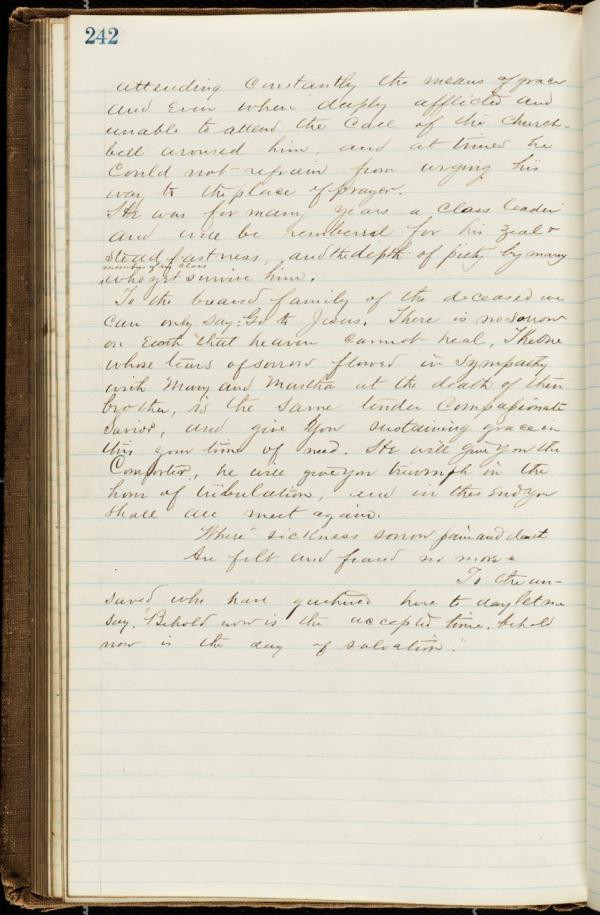 242
attending Constantly the means of grace
and Even when deeply afflicted and
unable to attend the Call of the Church-
bell aroused him, and at times he
Could not refrain from urging his
way to the place of prayer.
He was for many years a class leader
and will be rembered for his zeal &
steadfastness, and the depth of piety by many
members of his class
who yet survive him.
To the breaved family of the deceased we
can only say: Go to Jesus. There is no sorrow
on Earth that heaven cannot heal, The one
whose tears of sorrow flowed in Sympathy
with Mary and Martha at the death of their
brother, is the same tender Compassionate
Savior, and give you sustaining grace in
this your time of need. He will give you the
Comforter, he will give you triumph in the
hour of tribulation, and in the End you
shall all meet again.
"Where sickness sorrow pain and death
Are felt and feard no more
To the un-
saved who have gathered here to day let me
say. "Behold now is the accepted time, behold
now is the day of salvation."